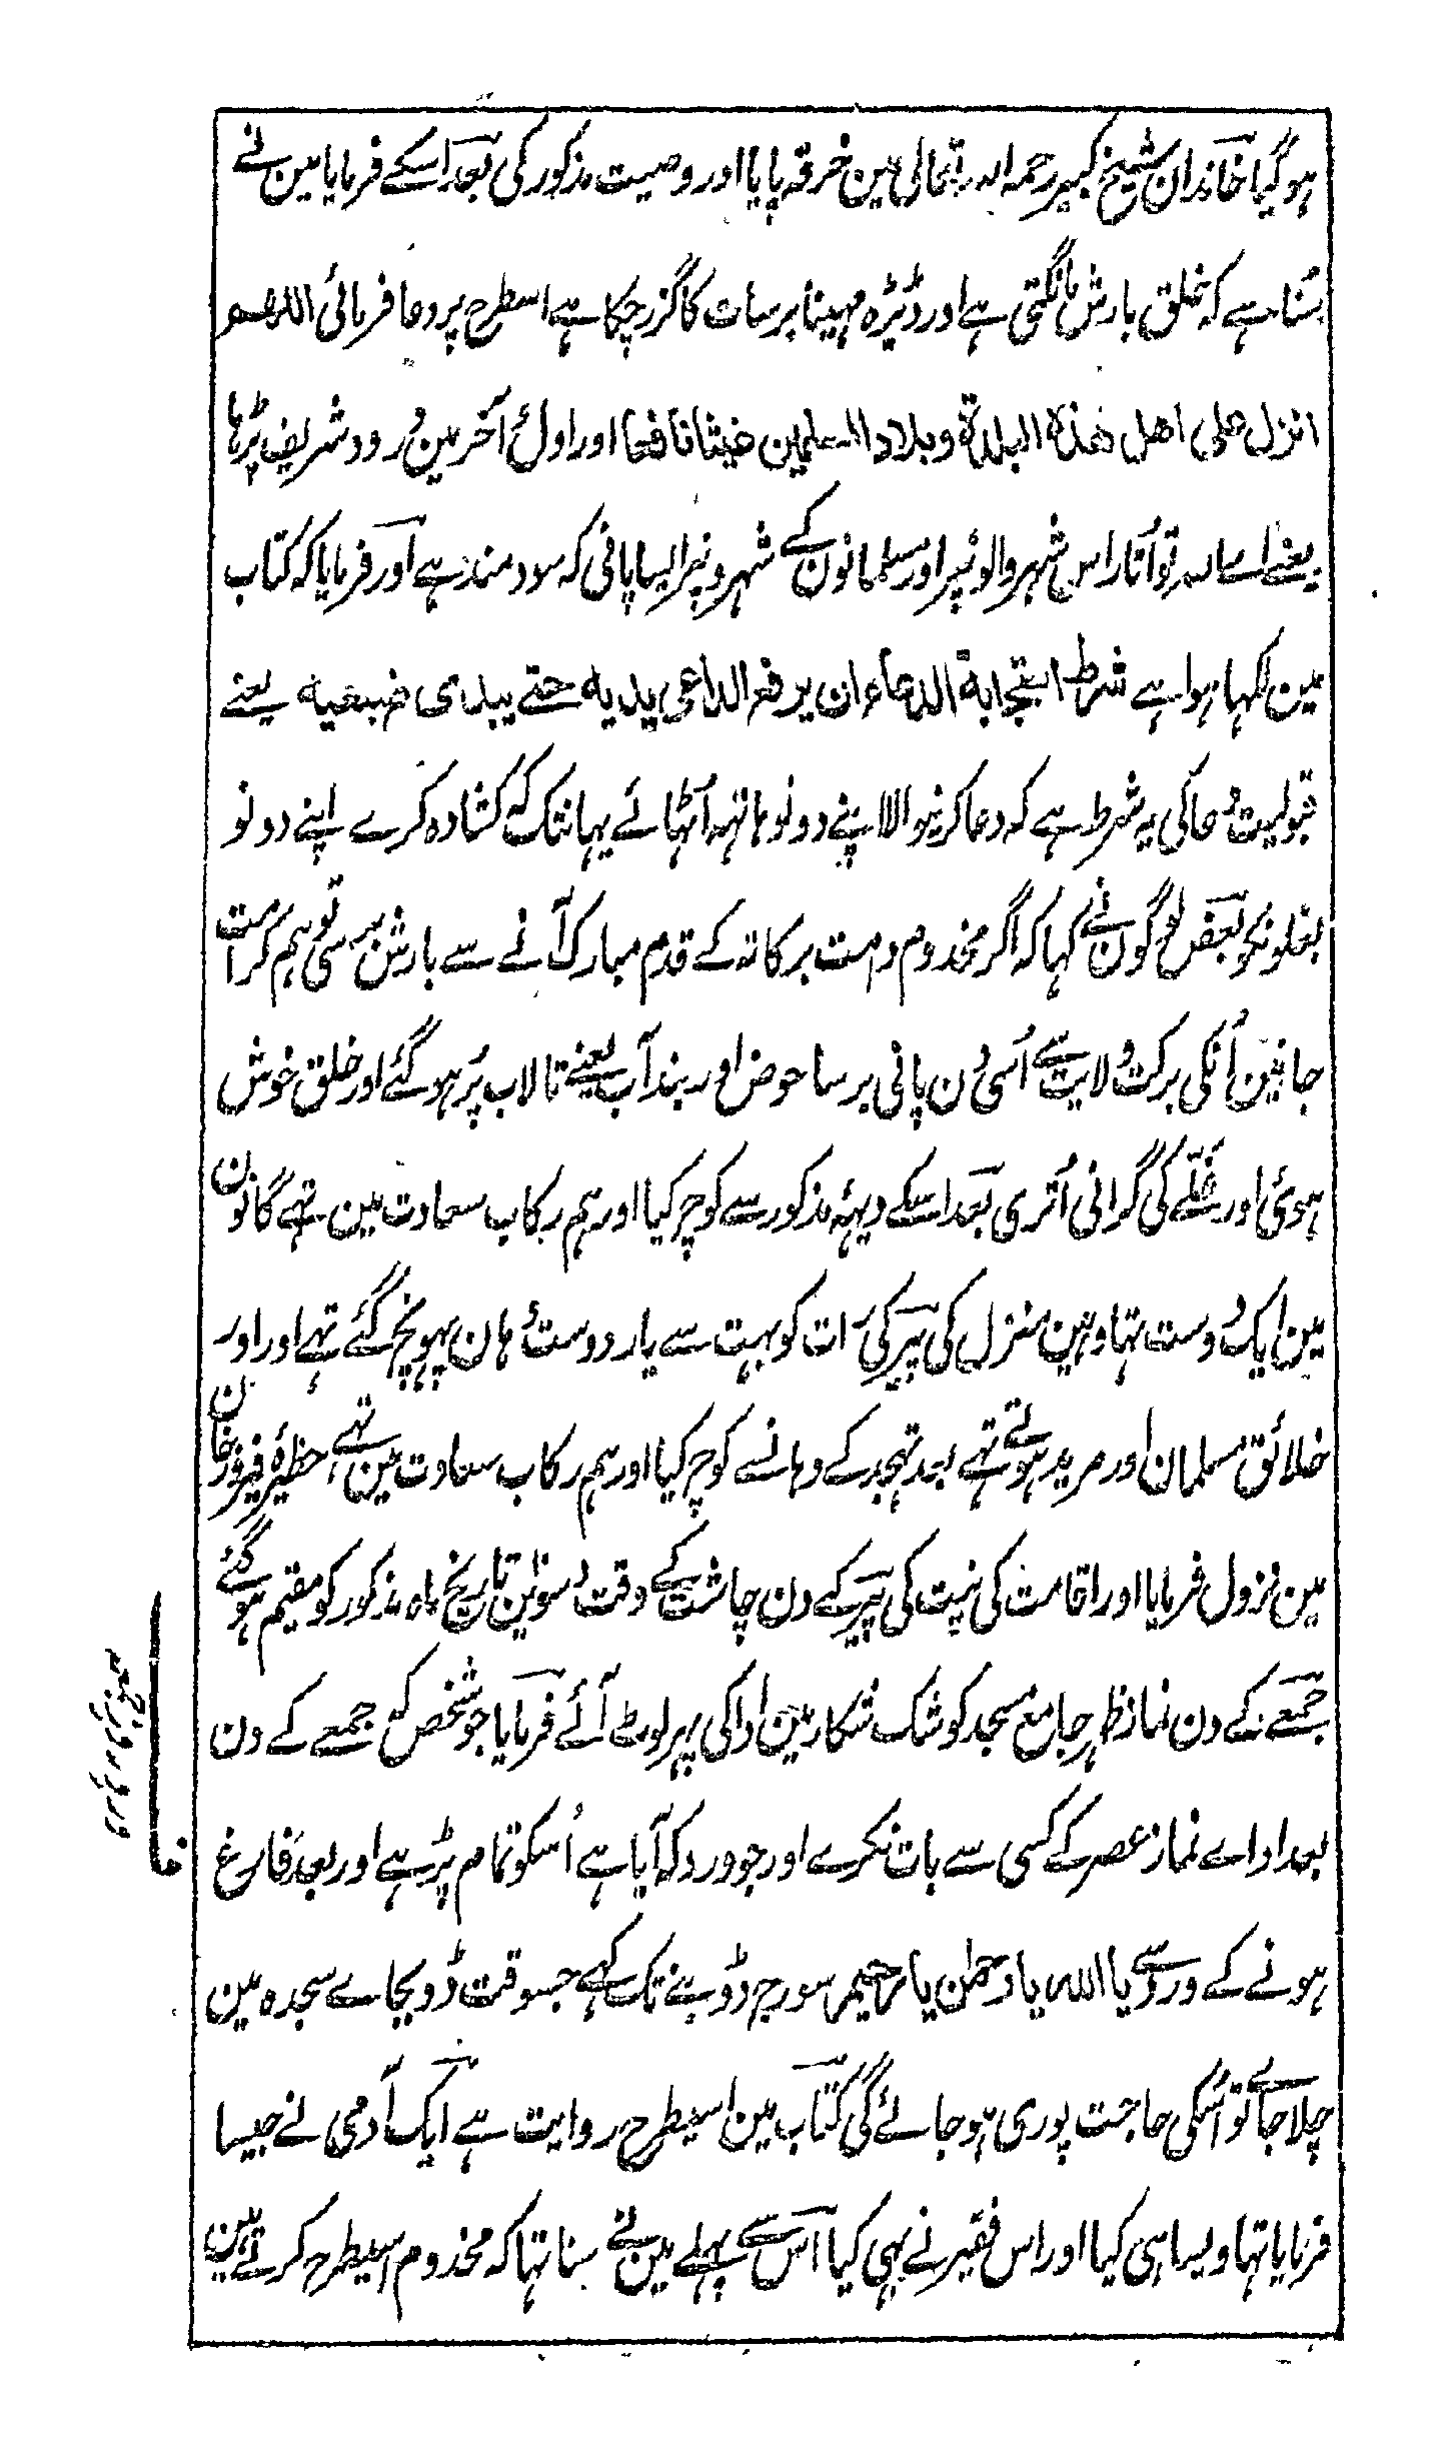 ہوگیا خاندان شیخ کبیر رحمہ اللہ تعالی مین خرقہ پایا اور وصیت مذکور کی بعد اسکے فرمایا مین نے
سُنا ہے کہ خلق بارش مانگتی ہے اور ڈیڑہ مہینا برسات کا گزر چکا ہے اسطرح پر دعا فرمائی اللهم
انزل علی اهل هذه البلدة وبلاد المسلمین غیثا نافعا اور اول و آخر مین درود شریف پڑہا
یعنے اے اللہ تو اُتار اس شہر والونپر اور مسلمانون کے شہرونپر ایسا پانی کہ سودمند ہے اور فرمایا کہ کتاب
مین لکہا ہوا ہے شرط استجابة الدعاء ان یرفع الداعی یدیه حتے یبدی ضبعیه یعنے
قبولیت دعا کی یہ شرط ہے کہ دعا کرنیوالا اپنے دونو ہاتہہ اُٹہائے یہانتک کہ کشادہ کرے اپنے دونو
بغلونکو بعض لوگون نے کہا کہ اگر مخدوم دامت برکاتہ کے قدم مبارک آنے سے بارش برسی تو ہم کرامت
جانین اُنکی برکت ولایت سے اُسی دن پانی برسا حوض اور بند آب یعنے تالاب پُر ہوگئے اور خلق خوش
ہوئی اور غلّے کی گرانی اُتری بعد اسکے دیہہ مذکور سے کوچ کیا اور ہم رکاب سعادت مین تہے گانون
مین ایک دوست تہا وہین منزل کی پیر کی رات کو بہت سے یار دوست وہان پہونچ گئے تہے اور اور
خلائق مسلمان اور مرید ہوتے تہے بعد تہجد کے وہانسے کوچ کیا اور ہم رکاب سعادت مین تہے حظیرۂ فیروز خان
مین نزول فرمایا اور اقامت کی نیت کی پیر کے دن چاشت کے وقت دسوین تاریخ ماہ مذکور کو مقیم ہوگئے
جمعے کے دن نماز ظہر جامع مسجد کوشک شکار مین ادا کی پہر لوٹ آئے فرمایا جو شخص کہ جمعے کے دن
بعد ادا ے نماز عصر کے کسی سے بات نکرے اور جو ورد کہ آیا ہے اُسکو تمام پڑہے اور بعد فارغ
ہونے کے ورد سے یا الله یا رحمٰن یا رحیم سورج ڈوبنے تک کہے جسوقت ڈوبجاے سجدہ مین
چلا جائے تو اُسکی حاجت پوری ہوجائے گی کتاب مین اسیطرح روایت ہے ایک آدمی نے جیسا
فرمایا تہا ویسا ہی کیا اور اس فقیر نے بہی کیا اس سے پہلے مین نے سنا تہا کہ مخدوم اسیطرح کرتے ہین